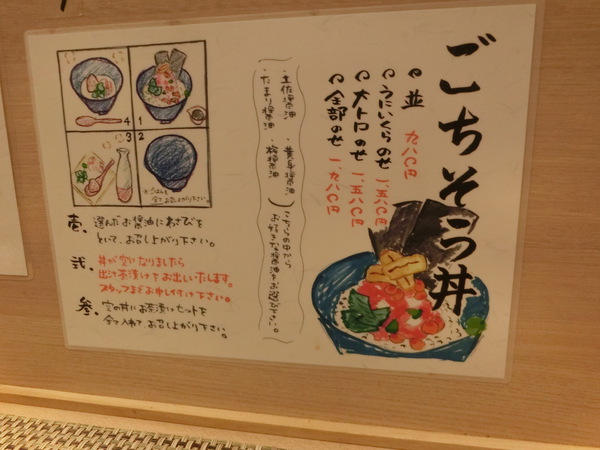 ごちそう丼
並 九八〇円
うにいくらのせ 一、五八〇円
大トロのせ 一、五八〇円
全部のせ 一、九八〇円
・土佐醤油
・たまり醤油
・黄身醤油
・桜醤油
こちらの中から
お好きな醤油をお選び下さい。
1
2
3
4
ごはんも
全てお召し上がり下さい。
壱、選んだお醤油にわさびを
といて、お召し上がり下さい。
弐、丼が空いなりましたら
出汁茶漬けをお出しいたします。
スタッフまでお申し付け下さい。
参、空の丼にお茶漬けセットを
全て入れて、お召し上がり下さい。